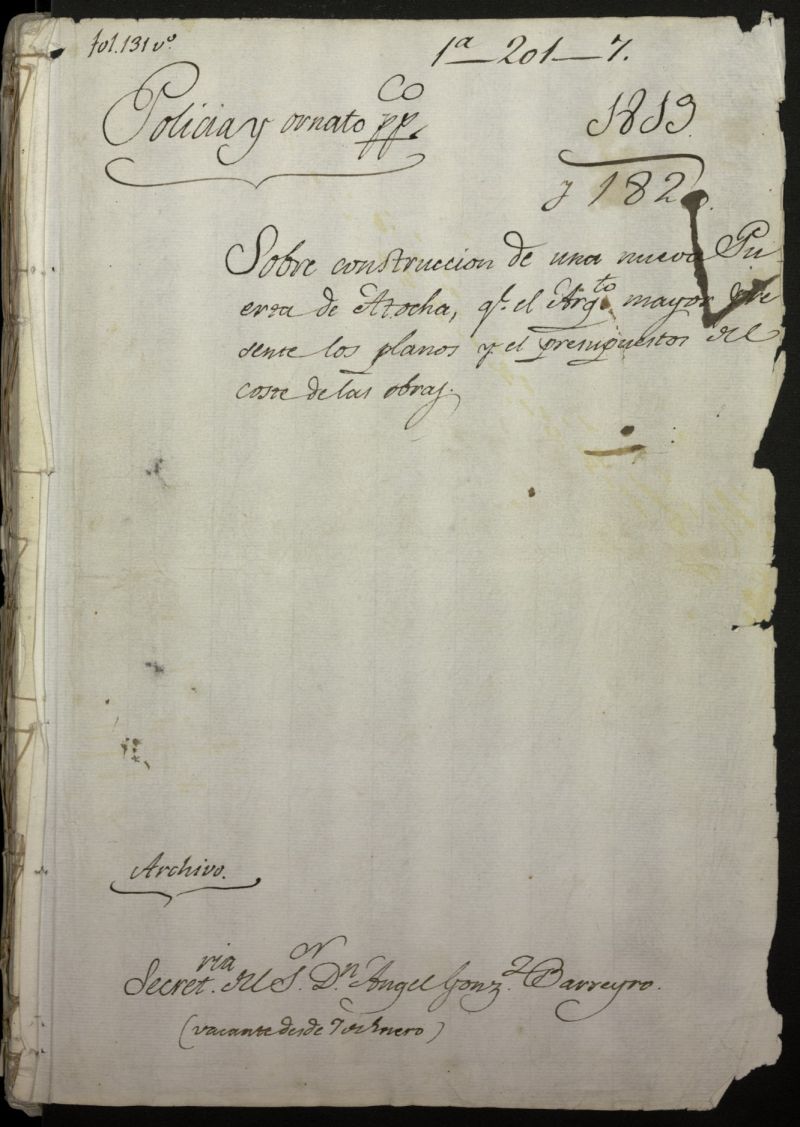 fol. 131 vº.
1ª—201—7.
Policia y ornato ppco.
1819.
y 1820.
Sobre construccion de una nueva Pu
erta de Atocha, q.e el Arqto mayor pre
sente los planos y el presupuestos del
coste de las obras.
Archivo.
Secretria. del Sor. Dn. Angel Gonzz. Barreyro.
(vacante desde 7 de Enero)